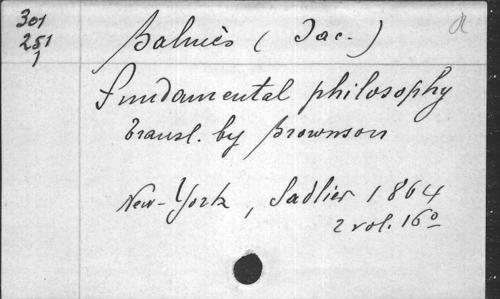 301
251
1
Balmès ( Jac. )
Fundamental philosophy
transl. by Brownson
New-York, Sadlier 1864
2 vol. 16º